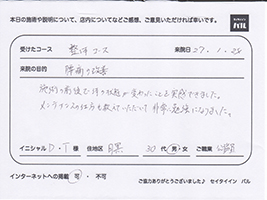 本日の施術や説明について、店内についてなどご感想、ご意見いただければ幸いです。
セイタイイン バル
受けたコース 整体コース 来院日 27.1.25
来院の目的 腰痛の改善
施術の前後で体の状態が変わったことを実感できました。
メンテナンスの仕方も教えていただいて非常に勉強になりました。
イニシャル D・T 様 住地区 目黒 30代 男・女 ご職業 公務員
インターネットへの掲載 可・不可
ご協力ありがとうございました♪ セイタイイン バル